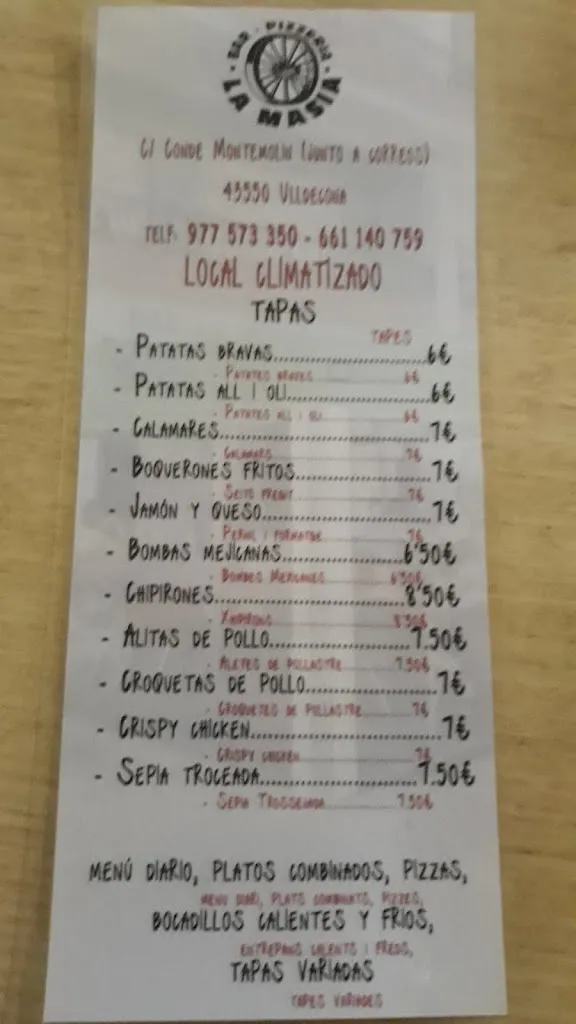 BAR · PIZZERIA
LA MASIA
C/ CONDE MONTEMOLIN (JUNTO A CORREOS)
43550 ULLDECONA
TELF. 977 573 350 - 661 140 759
LOCAL CLIMATIZADO
TAPAS
TAPES
- PATATAS BRAVAS..........6€
- PATATES BRAVES..........6€
- PATATAS ALL I OLI..........6€
- PATATES ALL I OLI..........6€
- CALAMARES..........7€
- CALAMARS..........7€
- BOQUERONES FRITOS..........7€
- SEITÓ FREGIT..........7€
- JAMÓN Y QUESO..........7€
- PERNIL I FORMATGE..........7€
- BOMBAS MEJICANAS..........6'50€
- BOMBES MEXICANES..........6'50€
- CHIPIRONES..........8'50€
- XIPIRONS..........8'50€
- ALITAS DE POLLO..........7.50€
- ALETES DE POLLASTRE..........7.50€
- CROQUETAS DE POLLO..........7€
- CROQUETES DE POLLASTRE..........7€
- CRISPY CHICKEN..........7€
- CRISPY CHICKEN..........7€
- SEPIA TROCEADA..........7.50€
- SEPIA TROSSEJADA..........7.50€
MENÚ DIARIO, PLATOS COMBINADOS, PIZZAS,
MENÚ DIARI, PLATS COMBINATS, PIZZES,
BOCADILLOS CALIENTES Y FRÍOS,
ENTREPANS CALENTS I FREDS,
TAPAS VARIADAS
TAPES VARIADES